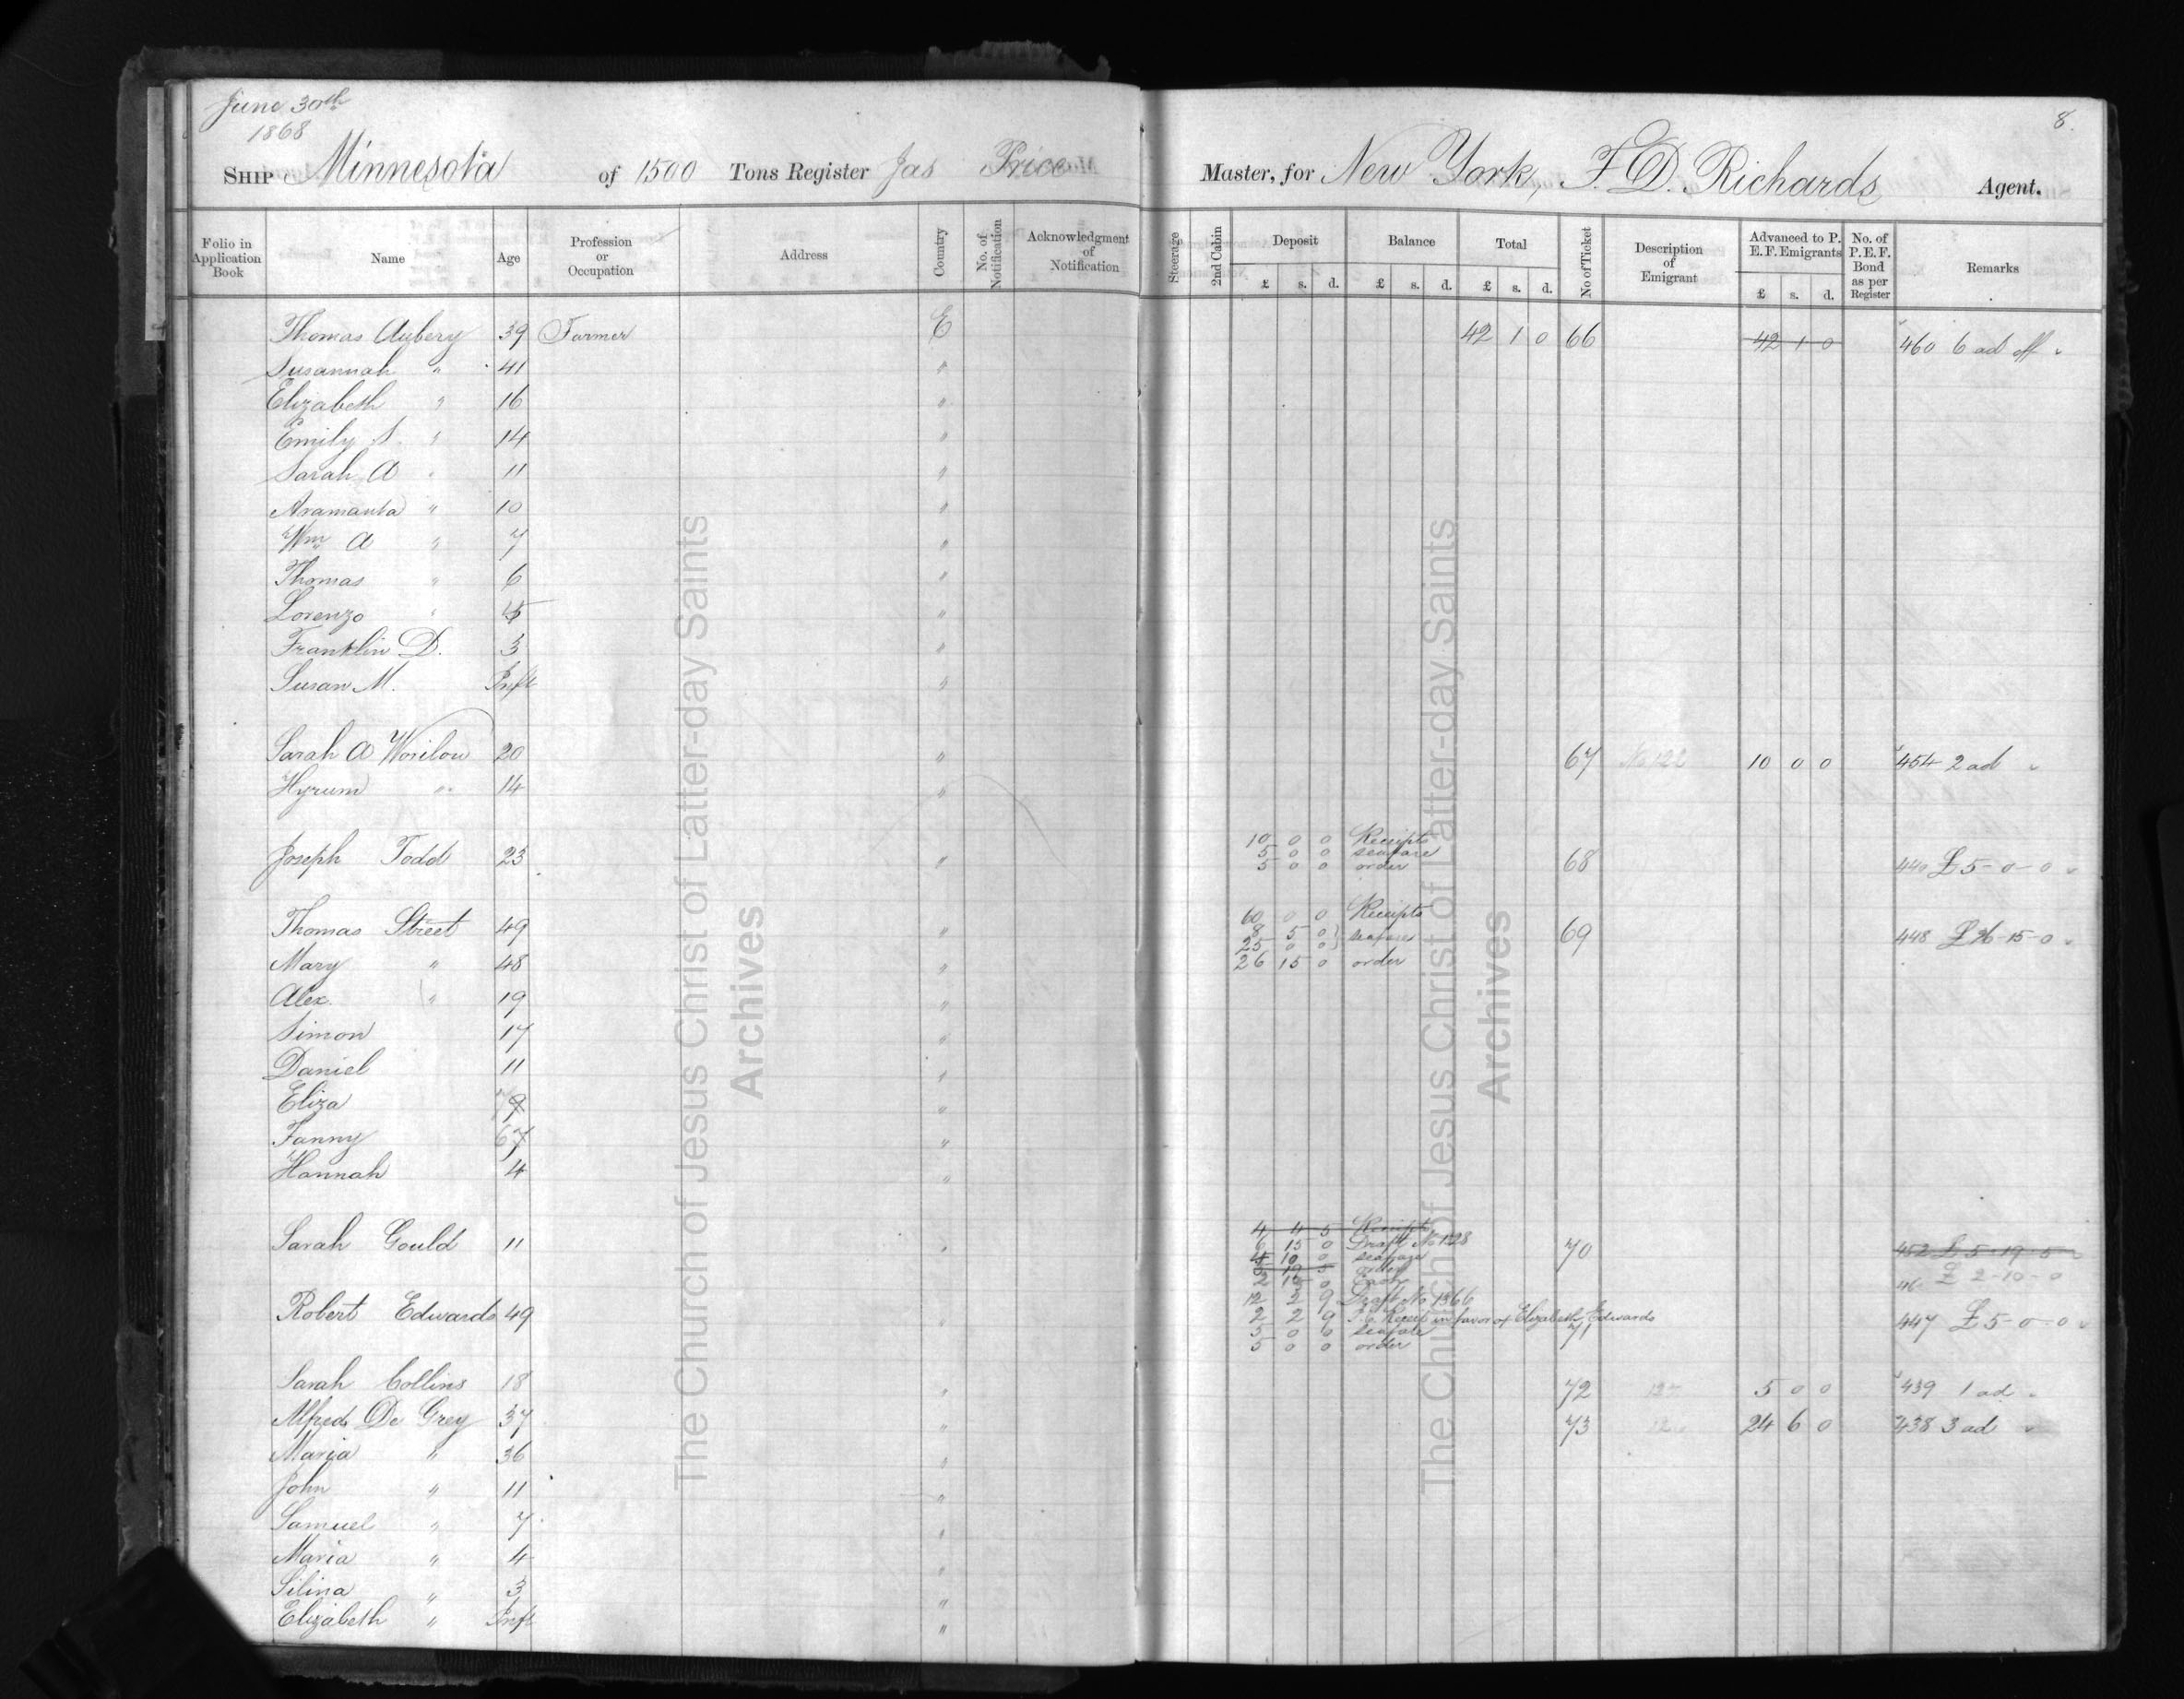 June 30th
1868
8.
Ship Minnesota of 1500 Tons Register Jas Price Master, for New York, F. D. Richards Agent.
Folio in Application Book Name Age Profession or Occupation Address Country No. of Notification Acknowledgment of Notification Steerage 2nd Cabin Deposit Balance Total No of Ticket Description of Emigrant Advanced to P. E. F. Emigrants No. of P. E. F. Bond as per Register Remarks
£ s. d. £ s. d. £ s. d. £ s. d.
Thomas Aubery 39 Farmer E 42 1 0 66 42 1 0 460 6 ad off
Susannah " 41 "
Elizabeth " 16 "
Emily S. " 14 "
Sarah A " 11 "
Aramanta " 10 "
Wm A " 7 "
Thomas " 6 "
Lorenzo " 5 "
Franklin D. 3 "
Susan M. Inft "
Sarah A Worilow 20 " 67 No 122 10 0 0 454 2 ad
Hyrum " 14 "
10 0 0 Receipts
Joseph Todd 23 " 5 0 0 seafare 68 440 £5-0-0
5 0 0 order
60 0 0 Receipts
Thomas Street 49 " 8 5 0 69 448 £26-15-0
25 0 0 seafare
Mary " 48 " 26 15 0 order
Alex. " 19 "
Simon 17 "
Daniel 11 "
Eliza 9 "
Fanny "
Hannah 4 "
4 4 5 Receipt
Sarah Gould 11 " 6 15 0 Draft No 1328 70 452 £5-19-5
4 10 0 seafare
5 19 5 order
2 10 0 Cash 46 £2-10-0
12 2 9 Draft No 1366
Robert Edwards 49 " 2 2 9 Receipt in favor of Elizabeth Edwards 447 £5-0-0
5 0 0 seafare 71
5 0 0 order
Sarah Collins 18 " 72 5 0 0 439 1 ad
Alfred De Grey 37 " 73 24 6 0 438 3 ad
Maria " 36 "
John " 11 "
Samuel " 7 "
Maria " 4 "
Silina " 3 "
Elizabeth " Inft "
The Church of Jesus Christ of Latter-day Saints
Archives
The Church of Jesus Christ of Latter-day Saints
Archives